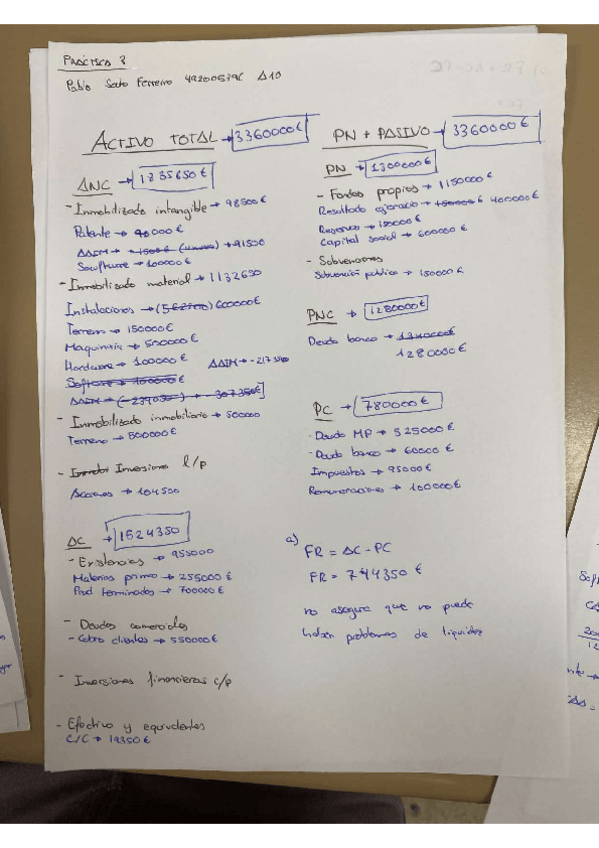 PRÁCTICA 3
Pablo Souto Ferreiro A10
ACTIVO TOTAL → 3360000€
ANC → 1835650€
- Inmobilizado intangible → 98500€
Patente → 90000€
AAIM → -1500€ → -91500
Software → 100000€
- Inmobilizado material → 1132650
Instalaciones → 600000€
Terreno → 150000€
Maquinaria → 500000€
Hardware → 100000€ AAIM → -217350
Software → 100000€
AAIM → (-239050€) → -307350€
- Inmobilizado inmobiliario → 500000
Terreno → 500000€
- Inversiones l/p
Acciones → 104500
AC → 1524350
- Existencias → 955000
Materias primas → 255000€
Prod terminados → 700000€
- Deudas comerciales
- Cobro clientes → 550000€
- Inversiones financieras c/p
- Efectivo y equivalentes
C/C → 19350€
PN + PASIVO → 3360000€
PN → 1300000€
- Fondos propios → 1150000€
Resultado ejercicio → 400000€
Reservas → 150000€
Capital social → 600000€
- Subvenciones
Subvención pública → 150000€
PNC → 1280000€
Deuda banco →
1280000€
PC → 780000€
- Deuda MP → 525000€
- Deuda banco → 60000€
Impuestos → 95000€
Remuneraciones → 100000€
a)
FR = AC - PC
FR = 744350€
no asegura que no puede
haber problemas de liquidez